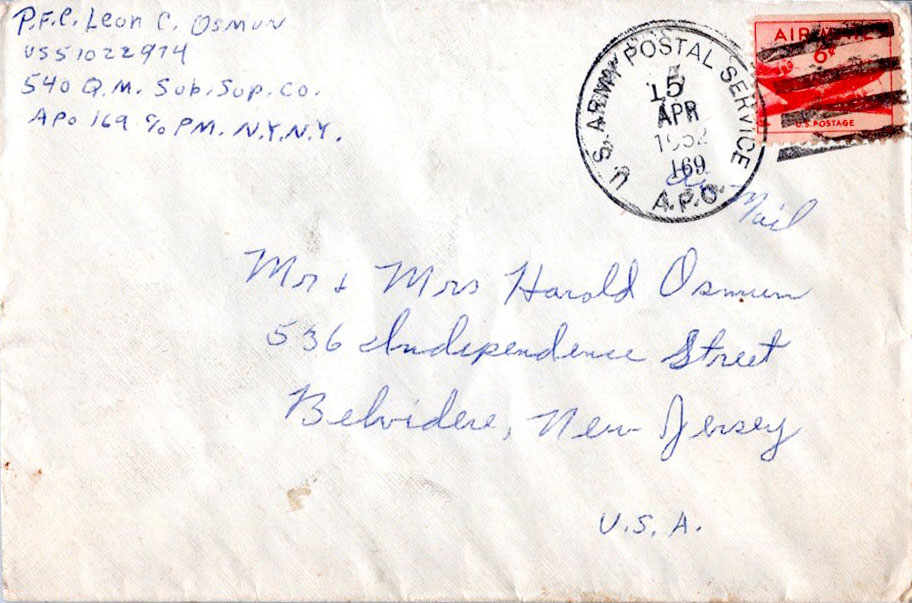 P.F.C. Leon C. Osmun
US51022974
540 Q.M. Sub. Sup. Co.
APO 169 c/o PM. N.Y.N.Y.
U.S. ARMY POSTAL SERVICE
15
APR
1952
169
A.P.O.
AIR MAIL
6¢
U.S. POSTAGE
Air Mail
Mr & Mrs Harold Osmun
536 Independence Street
Belvidere, New Jersey
U.S.A.